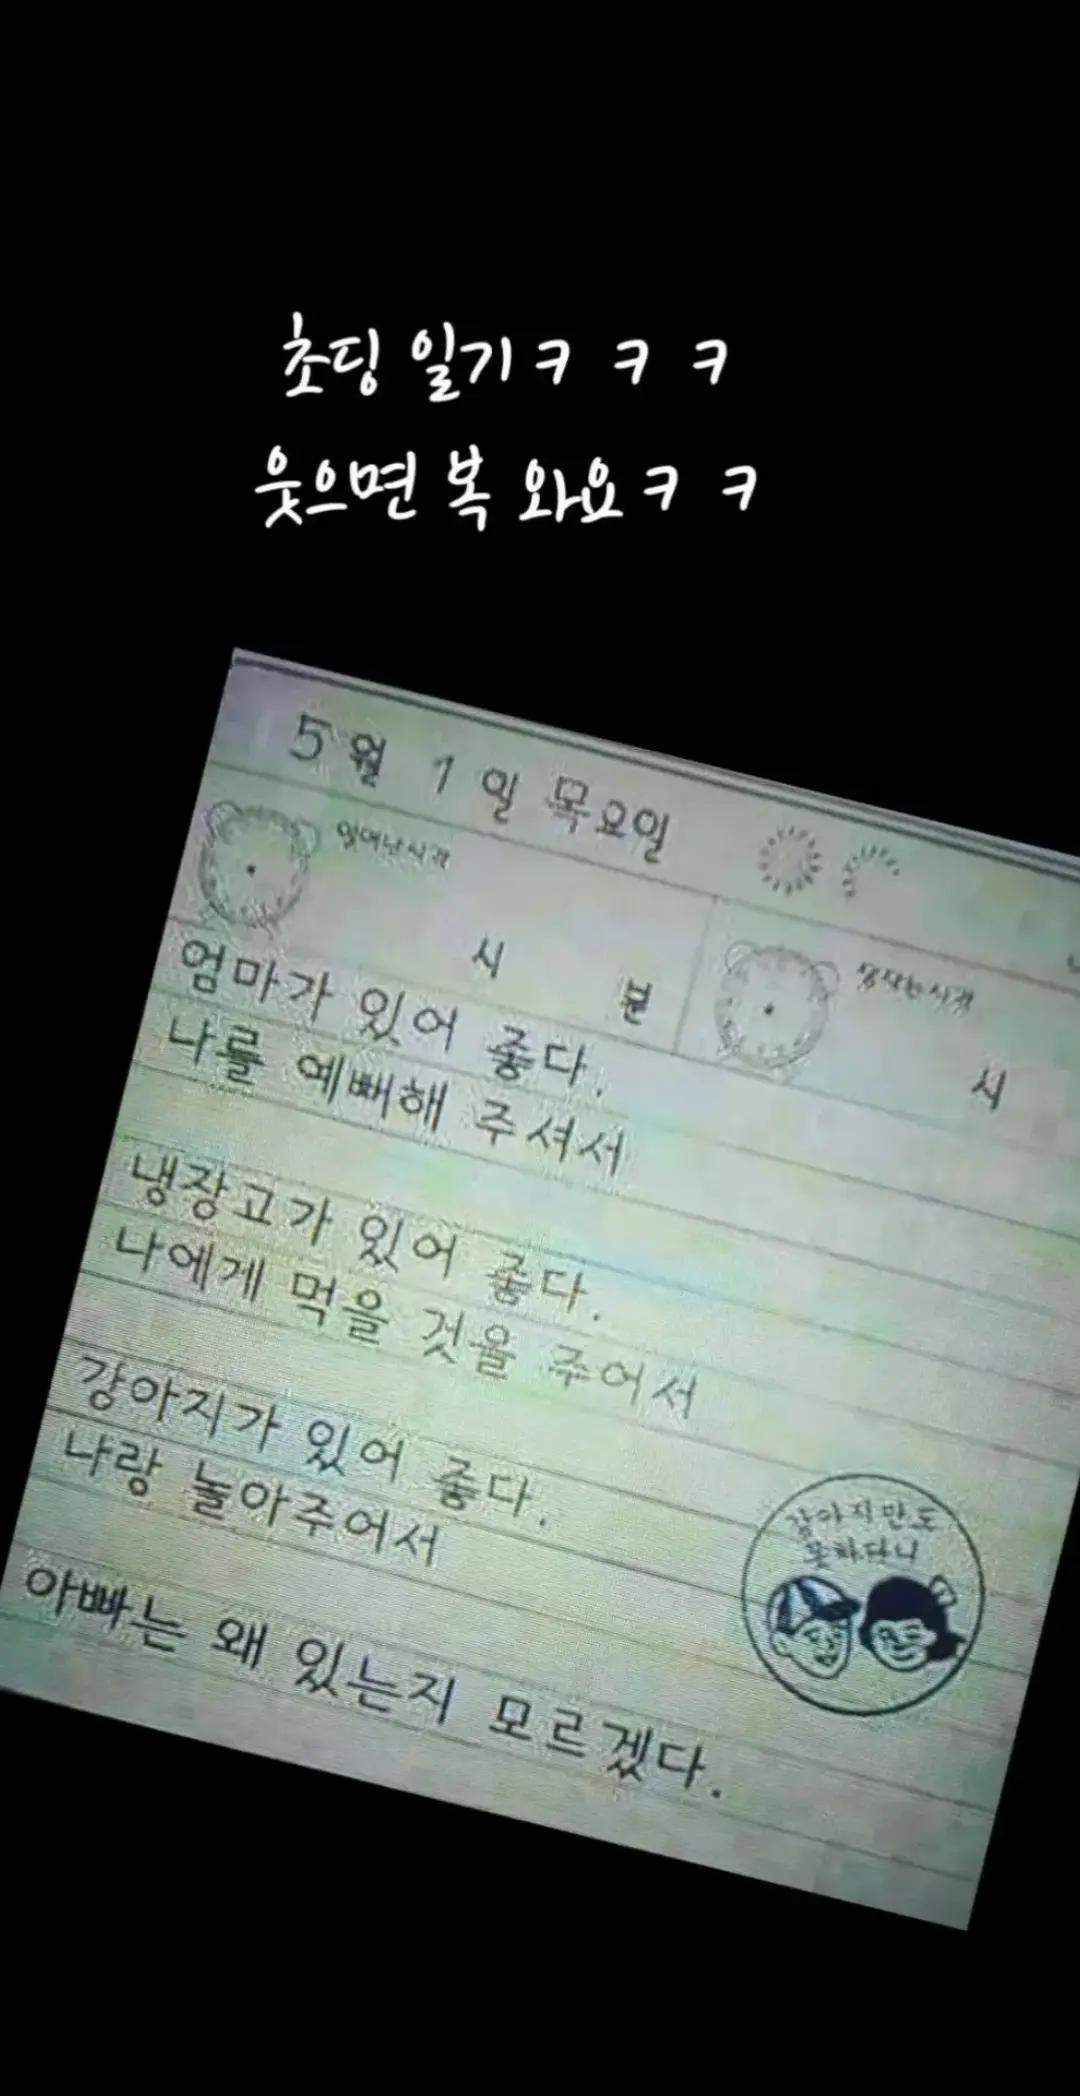 초딩 일기ㅋ ㅋ ㅋ
웃으면 복 와요ㅋ ㅋ
5월 1일 목요일
일어난시각
시 분
시
엄마가 있어 좋다.
나를 예뻐해 주셔서
냉장고가 있어 좋다.
나에게 먹을 것을 주어서
강아지가 있어 좋다.
나랑 놀아주어서
강아지만도
못하다니
아빠는 왜 있는지 모르겠다.